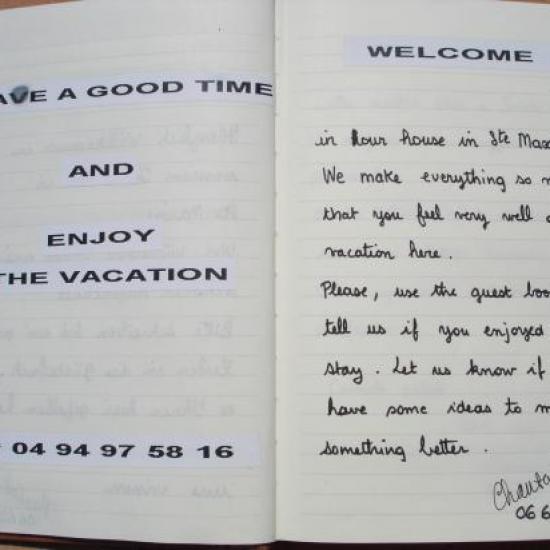 AVE A GOOD TIME
AND
ENJOY
THE VACATION
04 94 97 58 16
WELCOME
in hour house in Ste Max
We make everything so
that you feel very well
vacation here.
Please, use the guest boo
tell us if you enjoyed
stay. Let us know if
have some ideas to m
something better.
Chanta
06 6